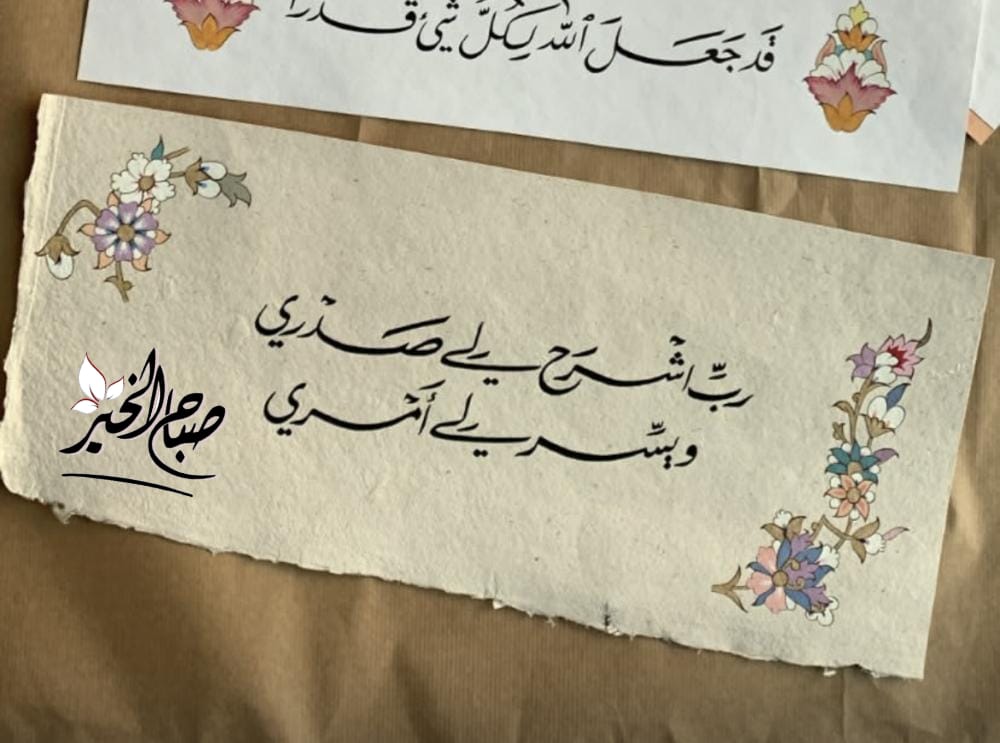 قد جعل الله لكل شيء قدرا
رب اشرح لي صدري
ويسر لي أمري
صباح الخير